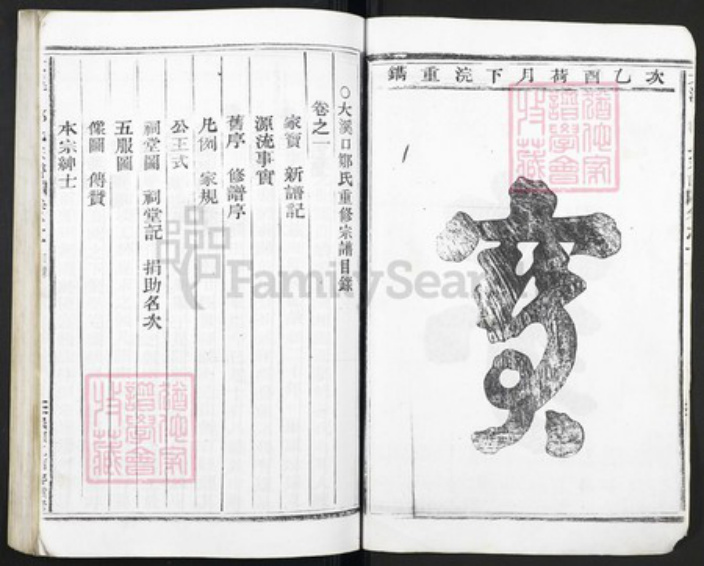 次乙酉荷月下浣重鐫
寳
○大溪口鄭氏重修宗譜目錄
卷之一
家寶 新譜記
源流事實
舊序 修譜序
凡例 家規
公王式
祠堂圖 祠堂記 捐助名次
五服圖
像圖 傳贊
本宗紳士
FamilySearch